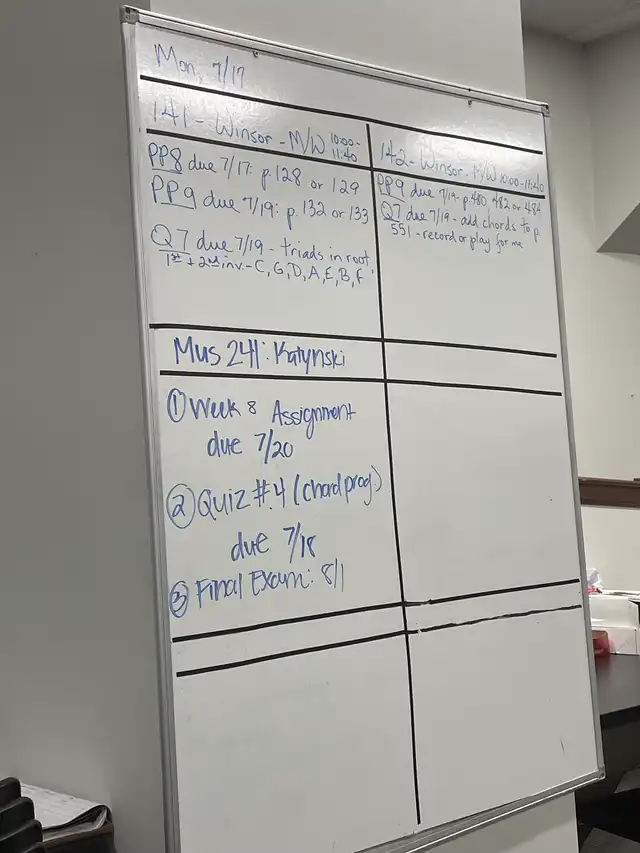 Mon, 7/17
141 - Winsor - M/W 10:00-
11:40
PP8 due 7/17: p. 128 or 129
PP9 due 7/19: p. 132 or 133
Q7 due 7/19 - triads in root,
1st + 2nd inv. - C, G, D, A, E, B, F
142 - Winsor - M/W 10:00-11:40
PP9 due 7/19 - p. 480, 482 or 484
Q7 due 7/19 - add chords to p
551 - record or play for me
Mus 241: Katynski
① Week 8 Assignment
due 7/20
② Quiz #4 (chord prog.)
due 7/18
③ Final Exam: 8/1